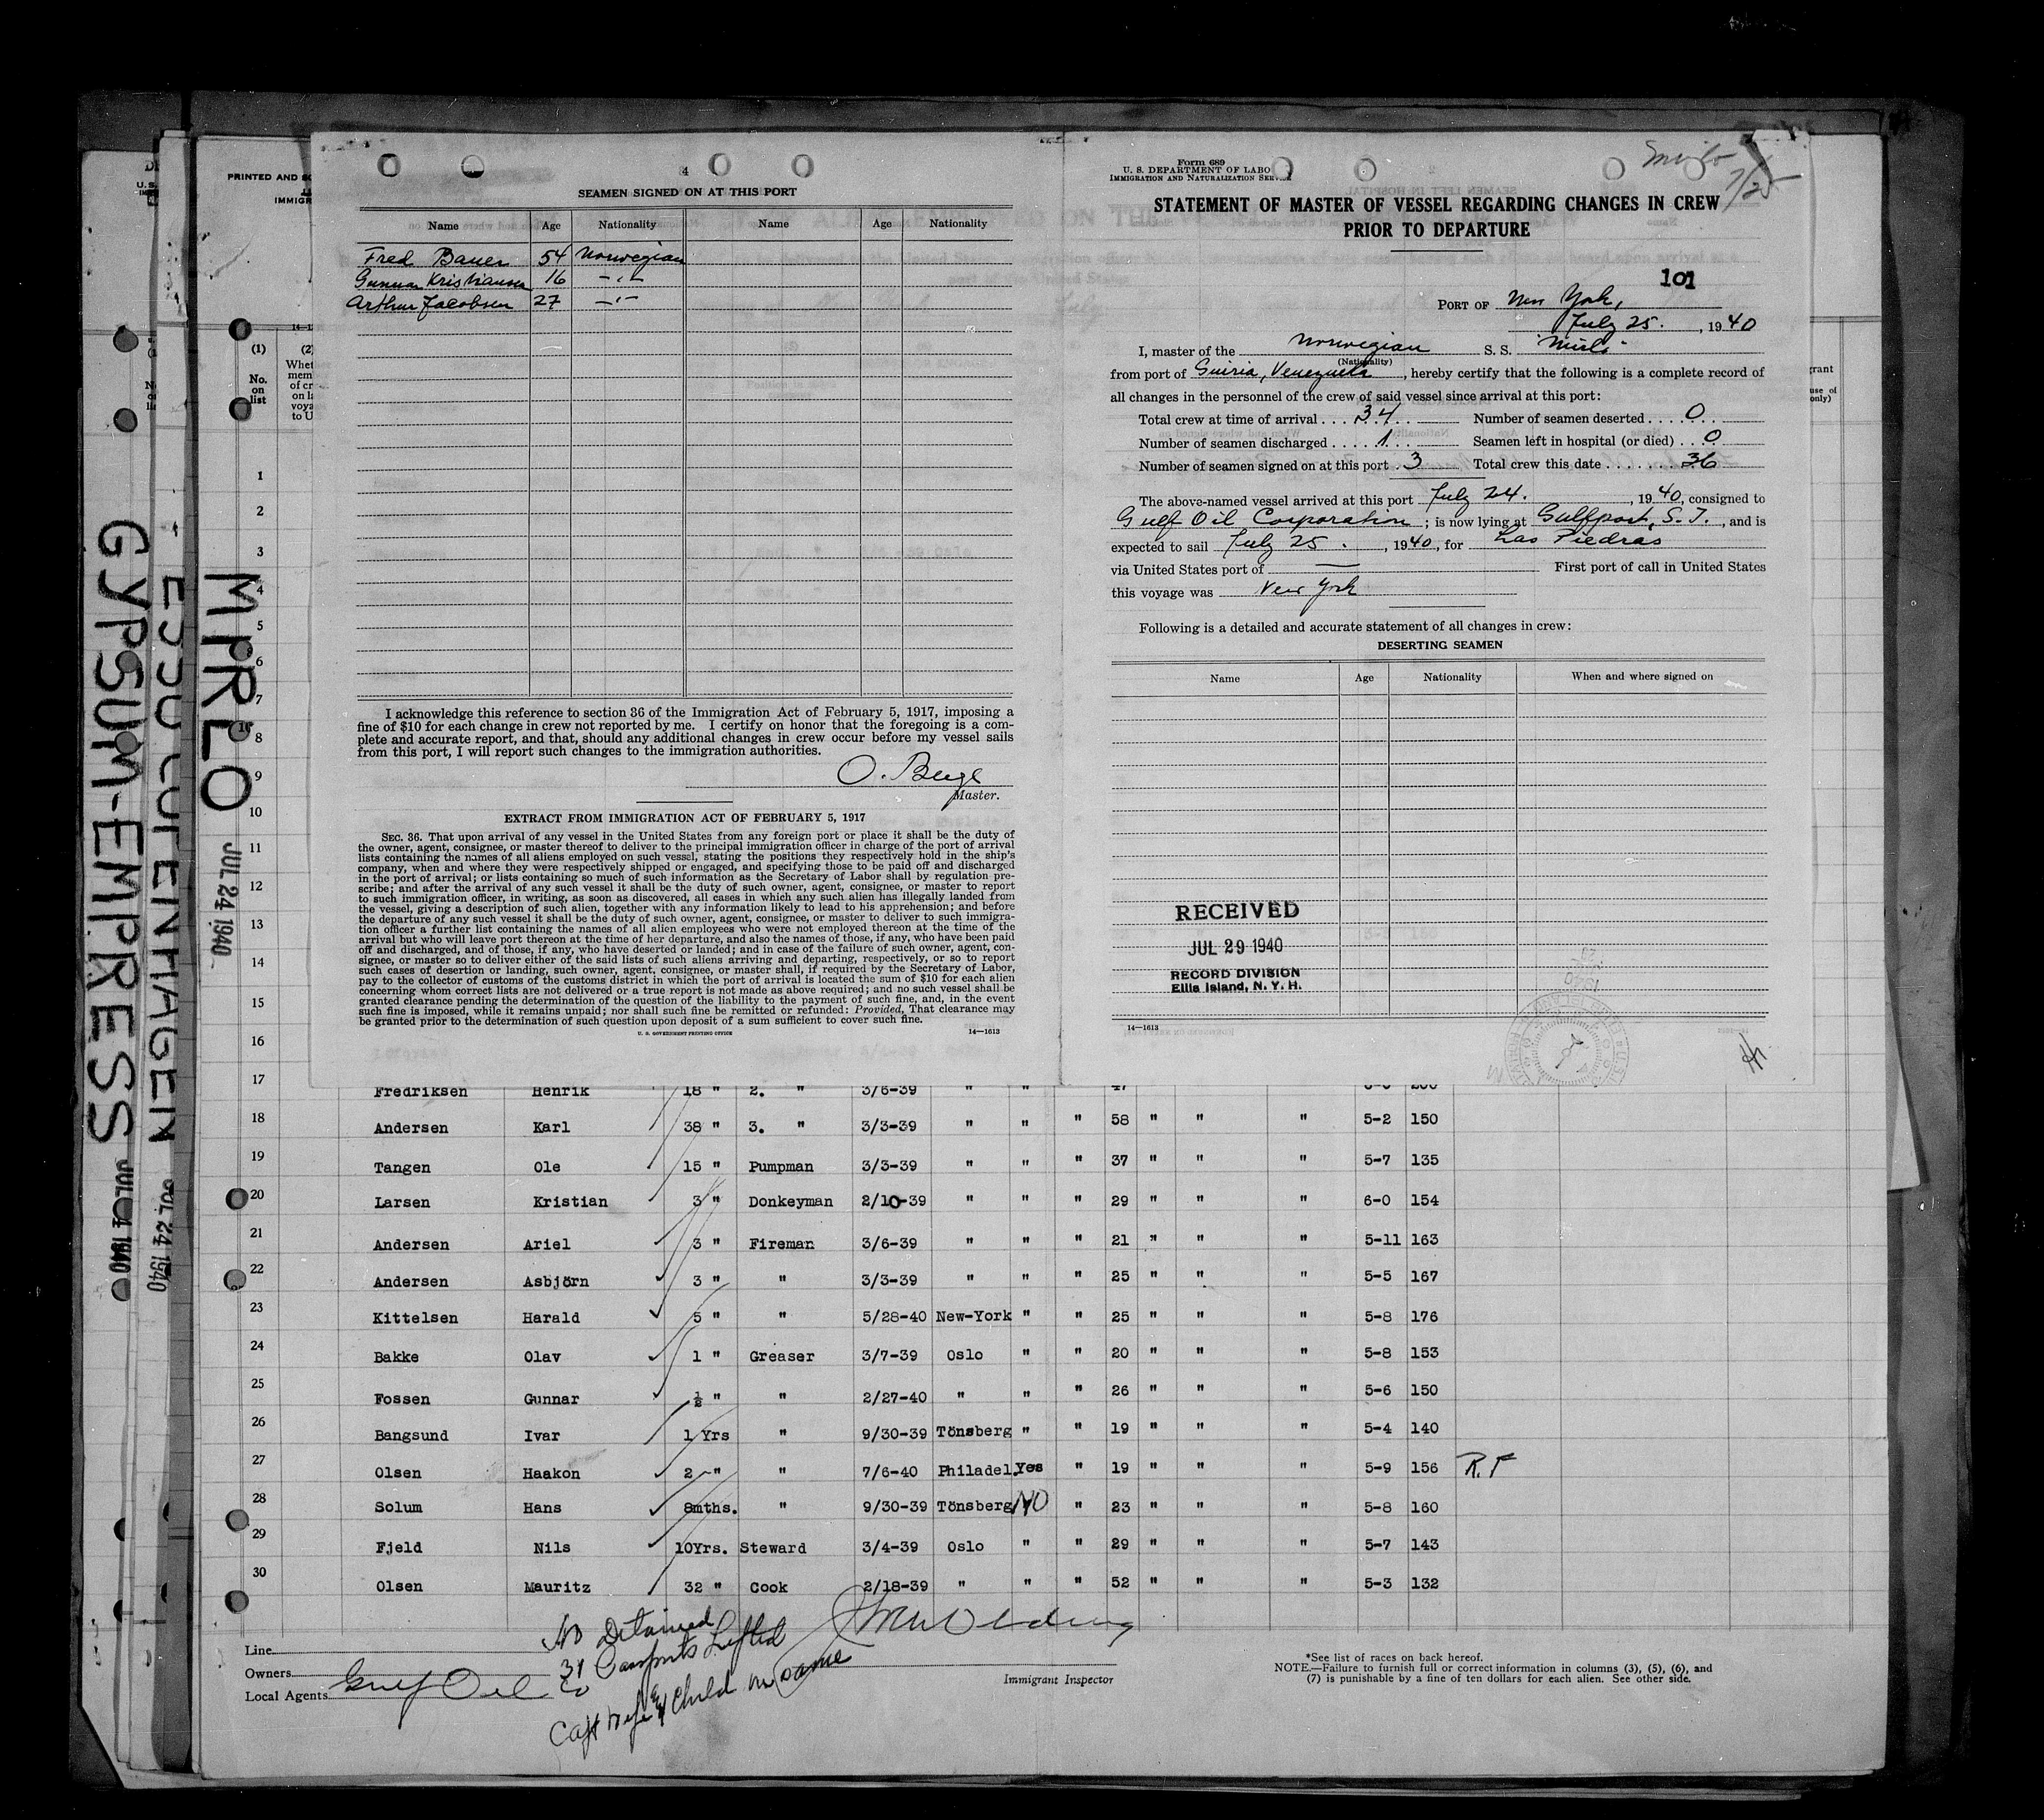 4
SEAMEN SIGNED ON AT THIS PORT
Name Age Nationality Name Age Nationality
Fred Bauer 54 Norwegian
Gunnar Kristiansen 16 -"-
Arthur Jacobsen 27 -"-
I acknowledge this reference to section 36 of the Immigration Act of February 5, 1917, imposing a
fine of $10 for each change in crew not reported by me. I certify on honor that the foregoing is a com-
plete and accurate report, and that, should any additional changes in crew occur before my vessel sails
from this port, I will report such changes to the immigration authorities.
Master.
EXTRACT FROM IMMIGRATION ACT OF FEBRUARY 5, 1917
SEC. 36. That upon arrival of any vessel in the United States from any foreign port or place it shall be the duty of
the owner, agent, consignee, or master thereof to deliver to the principal immigration officer in charge of the port of arrival
lists containing the names of all aliens employed on such vessel, stating the positions they respectively hold in the ship's
company, when and where they were respectively shipped or engaged, and specifying those to be paid off and discharged
in the port of arrival; or lists containing so much of such information as the Secretary of Labor shall by regulation pre-
scribe; and after the arrival of any such vessel it shall be the duty of such owner, agent, consignee, or master to report
to such immigration officer, in writing, as soon as discovered, all cases in which any such alien has illegally landed from
the vessel, giving a description of such alien, together with any information likely to lead to his apprehension; and before
the departure of any such vessel it shall be the duty of such owner, agent, consignee, or master to deliver to such immigra-
tion officer a further list containing the names of all alien employees who were not employed thereon at the time of the
arrival but who will leave port thereon at the time of her departure, and also the names of those, if any, who have been paid
off and discharged, and of those, if any, who have deserted or landed; and in case of the failure of such owner, agent, con-
signee, or master so to deliver either of the said lists of such aliens arriving and departing, respectively, or so to report
such cases of desertion or landing, such owner, agent, consignee, or master shall, if required by the Secretary of Labor,
pay to the collector of customs of the customs district in which the port of arrival is located the sum of $10 for each alien
concerning whom correct lists are not delivered or a true report is not made as above required; and no such vessel shall be
granted clearance pending the determination of the question of the liability to the payment of such fine, and, in the event
such fine is imposed, while it remains unpaid; nor shall such fine be remitted or refunded: Provided, That clearance may
be granted prior to the determination of such question upon deposit of a sum sufficient to cover such fine.
U. S. GOVERNMENT PRINTING OFFICE 14—1613
Form 689
U. S. DEPARTMENT OF LABO
IMMIGRATION AND NATURALIZATION SERVICE
7/25
STATEMENT OF MASTER OF VESSEL REGARDING CHANGES IN CREW
PRIOR TO DEPARTURE
101
PORT OF New York,
July 25. , 1940
I, master of the Norwegian S. S. "Mirlo"
(Nationality)
from port of Guiria, Venezuela, hereby certify that the following is a complete record of
all changes in the personnel of the crew of said vessel since arrival at this port:
Total crew at time of arrival . . . 34 Number of seamen deserted . . . . 0
Number of seamen discharged . . . . 1 Seamen left in hospital (or died) . . 0
Number of seamen signed on at this port . 3 Total crew this date . . . . . . . 36
The above-named vessel arrived at this port July 24. , 1940, consigned to
Gulf Oil Corporation ; is now lying at Gulfport, S. I. , and is
expected to sail July 25. , 1940, for Las Piedras
via United States port of — First port of call in United States
this voyage was New York
Following is a detailed and accurate statement of all changes in crew:
DESERTING SEAMEN
Name Age Nationality When and where signed on
RECEIVED
JUL 29 1940
RECORD DIVISION
Ellis Island, N. Y. H.
14—1613
PRINTED AND SO
IMMIGR
(1) (2)
No. on list
Whet
mem
of cr
on la
voya
to U
GYPSUM-EMPRESS JUL 24 1940
ESSO COPENHAGEN JUL 24 1940
MIRLO JUL 24 1940
1
2
3
4
5
6
7
8
9
10
11
12
13
14
15
16
17 Fredriksen Henrik 18 " 2. " 3/6-39 " " 47
18 Andersen Karl 38 " 3. " 3/3-39 " " " 58 " " " 5-2 150
19 Tangen Ole 15 " Pumpman 3/3-39 " " " 37 " " " 5-7 135
20 Larsen Kristian 3 " Donkeyman 2/10-39 " " " 29 " " " 6-0 154
21 Andersen Ariel 3 " Fireman 3/6-39 " " " 21 " " " 5-11 163
22 Andersen Asbjörn 3 " " 3/3-39 " " " 25 " " " 5-5 167
23 Kittelsen Harald 5 " " 5/28-40 New-York " " 25 " " " 5-8 176
24 Bakke Olav 1 " Greaser 3/7-39 Oslo " " 20 " " " 5-8 153
25 Fossen Gunnar ½ " " 2/27-40 " " " 26 " " " 5-6 150
26 Bangsund Ivar 1 Yrs " 9/30-39 Tönsberg " " 19 " " " 5-4 140
27 Olsen Haakon 2 " " 7/6-40 Philadel. Yes " 19 " " " 5-9 156 R.F
28 Solum Hans 8mths. " 9/30-39 Tönsberg NO " 23 " " " 5-8 160
29 Fjeld Nils 10Yrs. Steward 3/4-39 Oslo " " 29 " " " 5-7 143
30 Olsen Mauritz 32 " Cook 2/18-39 " " " 52 " " " 5-3 132
No Detained
31 Passports Lifted
Capt Wife & Child on same
Line
Owners
Local Agents Gulf Oil Co
Immigrant Inspector
*See list of races on back hereof.
NOTE.—Failure to furnish full or correct information in columns (3), (5), (6), and
(7) is punishable by a fine of ten dollars for each alien. See other side.